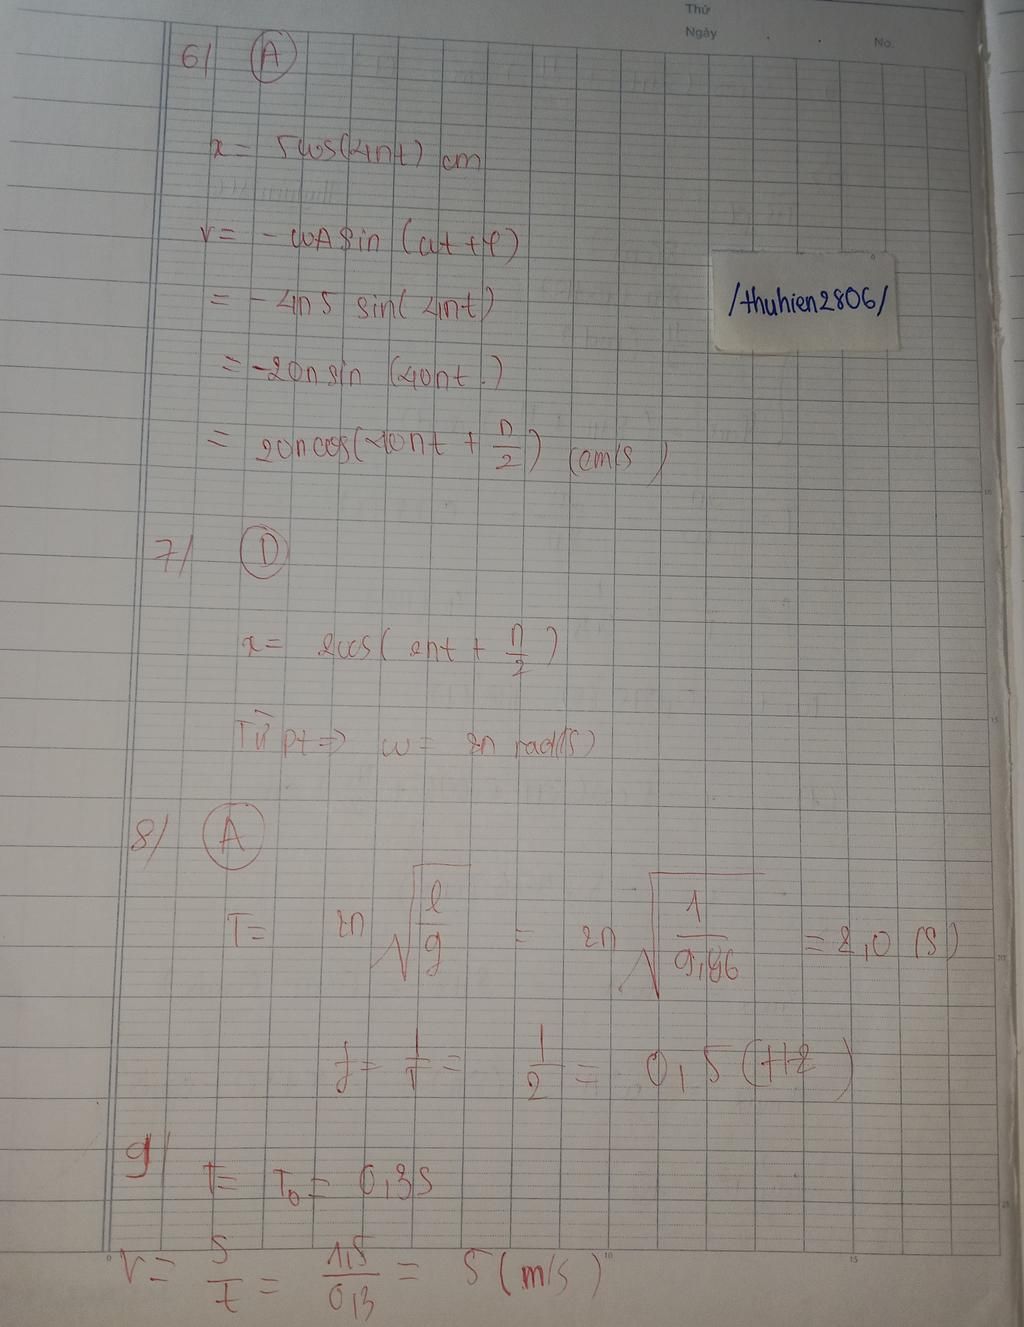 Thứ
Ngày
No.
6/ A
x = 5cos(4πt) cm
v = -ωA sin (ωt + φ)
= -4π5 sin(4πt)
/thuhien2806/
= -20π sin (40πt.)
= 20π cos(40πt + π/2) (cm/s)
7/ D
x = 2cos(2πt + π/2)
Từ pt => ω = 2π rad/s)
8/ A
T = 2π √(l/g) = 2π √(1/9,86) = 2,0 (s)
f = 1/T = 1/2 = 0,5 (Hz)
9/ T = T₀ = 0,3s
v = s/t = 1,5/0,3 = 5 (m/s)